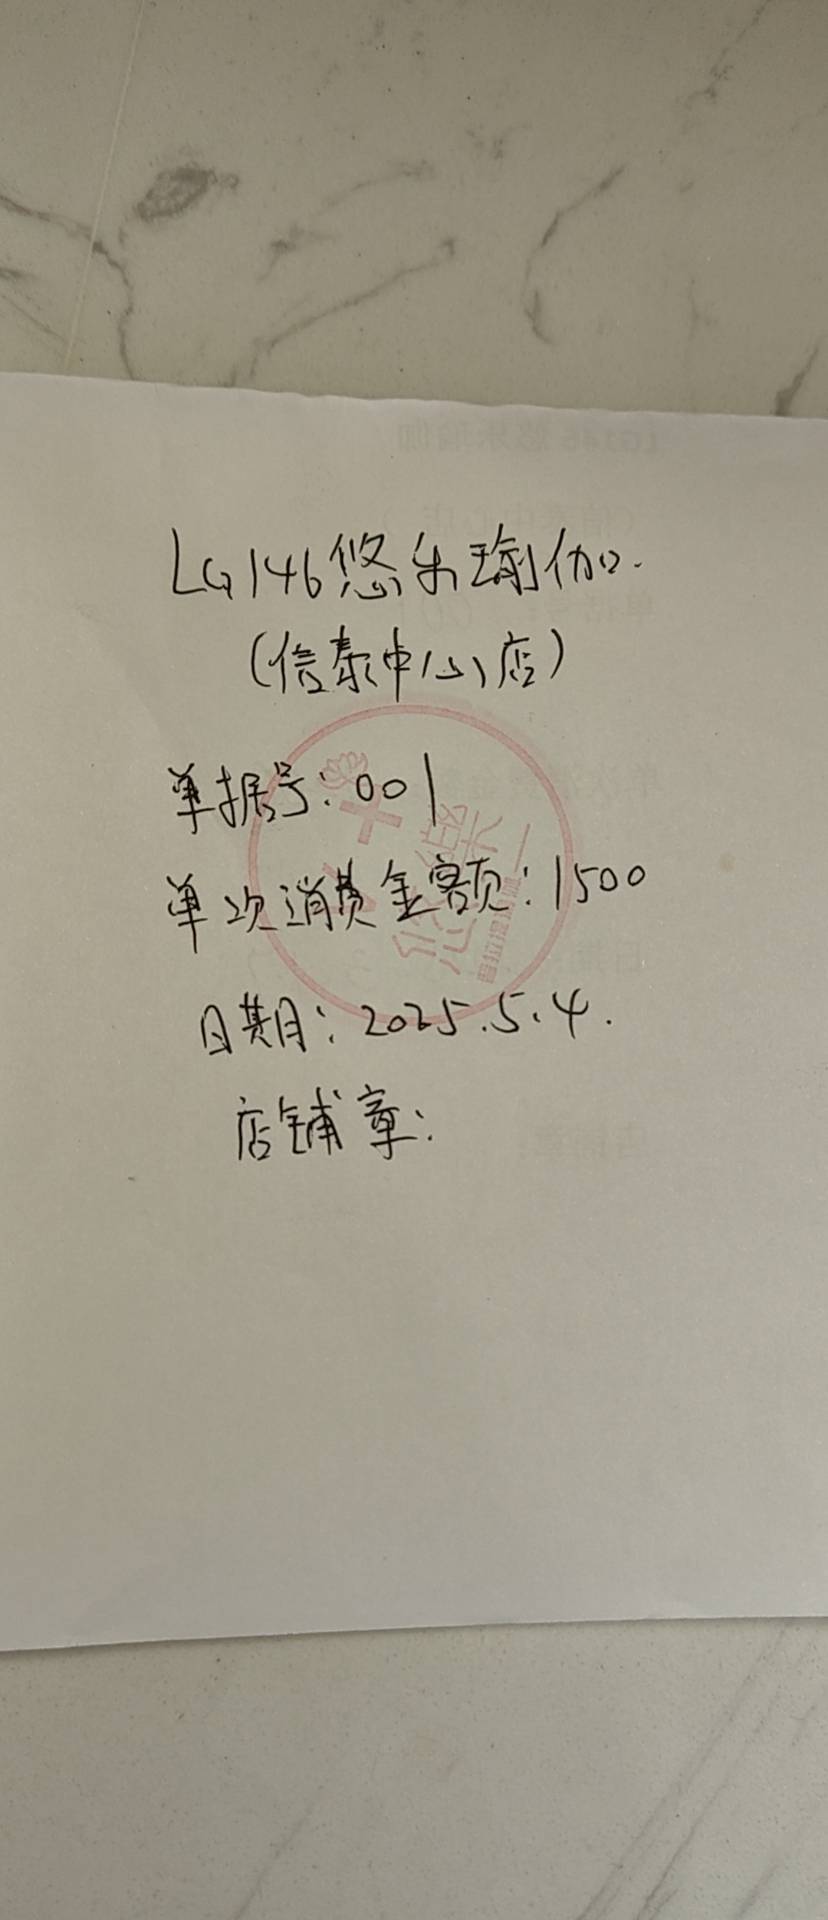 LG146悠乐瑜伽.
(信泰中心店)
单据号:001
单次消费金额:1500
日期:2025.5.4.
店铺章: